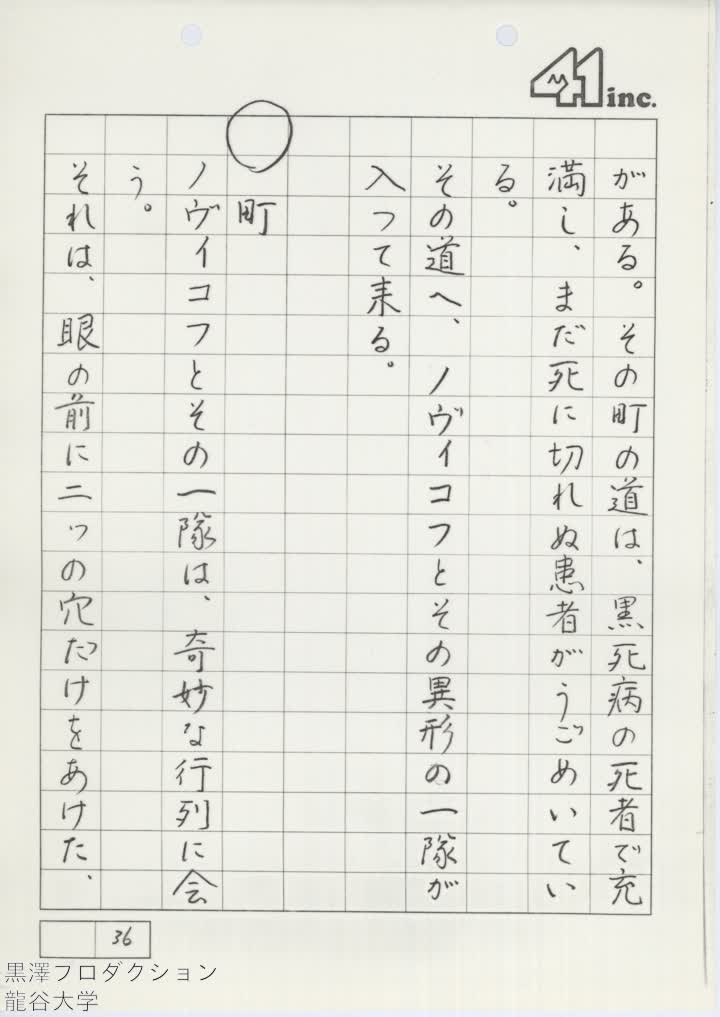 41 inc.
がある。その町の道は、黒死病の死者で充
満し、まだ死に切れぬ患者がうごめいてい
る。
その道へ、ノヴィコフとその異形の一隊が
入って来る。
○ 町
ノヴィコフとその一隊は、奇妙な行列に会
う。
それは、眼の前に二ッの穴だけをあけた、
36
黒澤フロダクション
龍谷大学